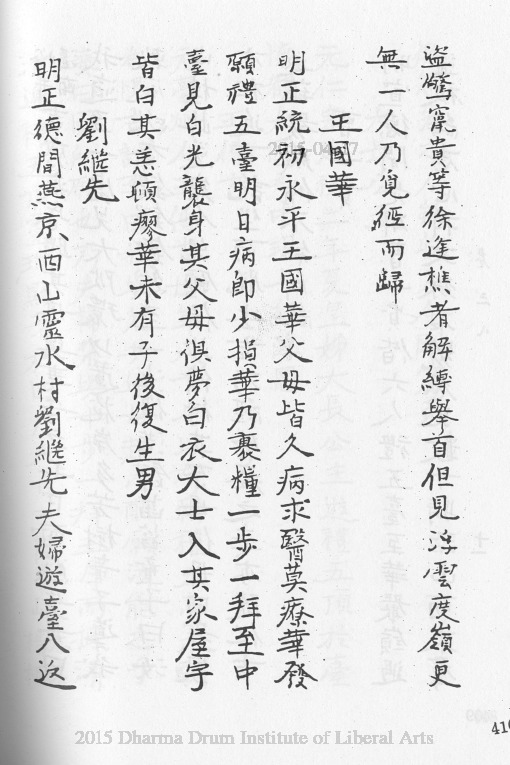 盜驚竄貴等徐逢樵者解縛舉首但見浮雲度嶺更
無一人乃覓徑而歸
王國華
明正統初永平王國華父母皆久病求醫莫療華發
願禮五臺明日病即少損華乃裹糧一步一拜至中
臺見白光襲身其父母俱夢白衣大士入其家屋宇
皆白其恙頓瘳華未有子後復生男
劉繼先
明正德間燕京西山靈水村劉繼先夫婦遊臺八返
410
2015 Dharma Drum Institute of Liberal Arts